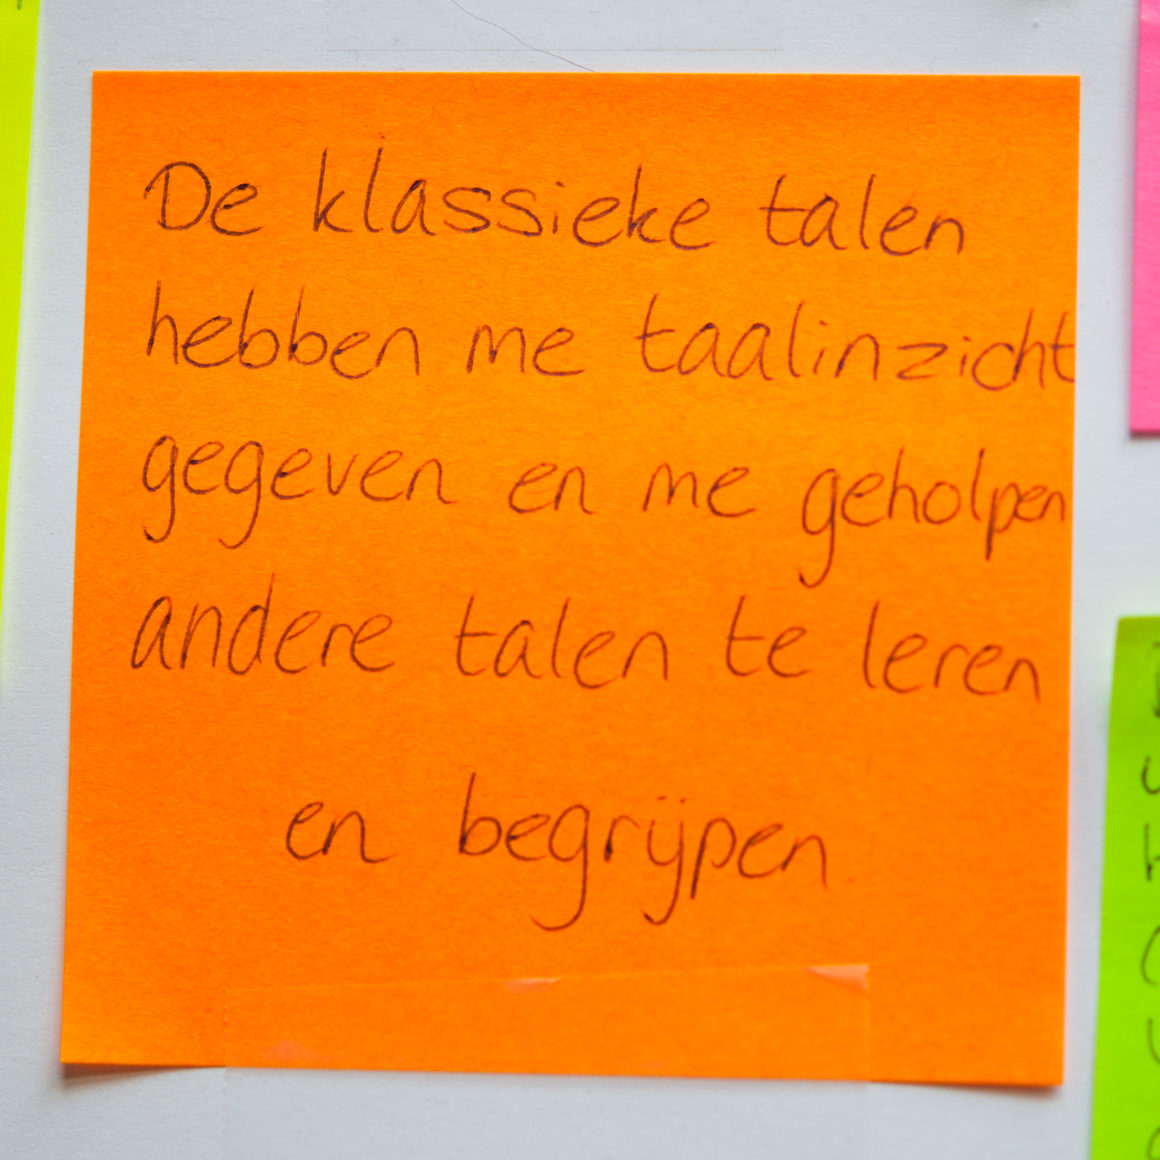 De klassieke talen
hebben me taalinzicht
gegeven en me geholpen
andere talen te leren
en begrijpen